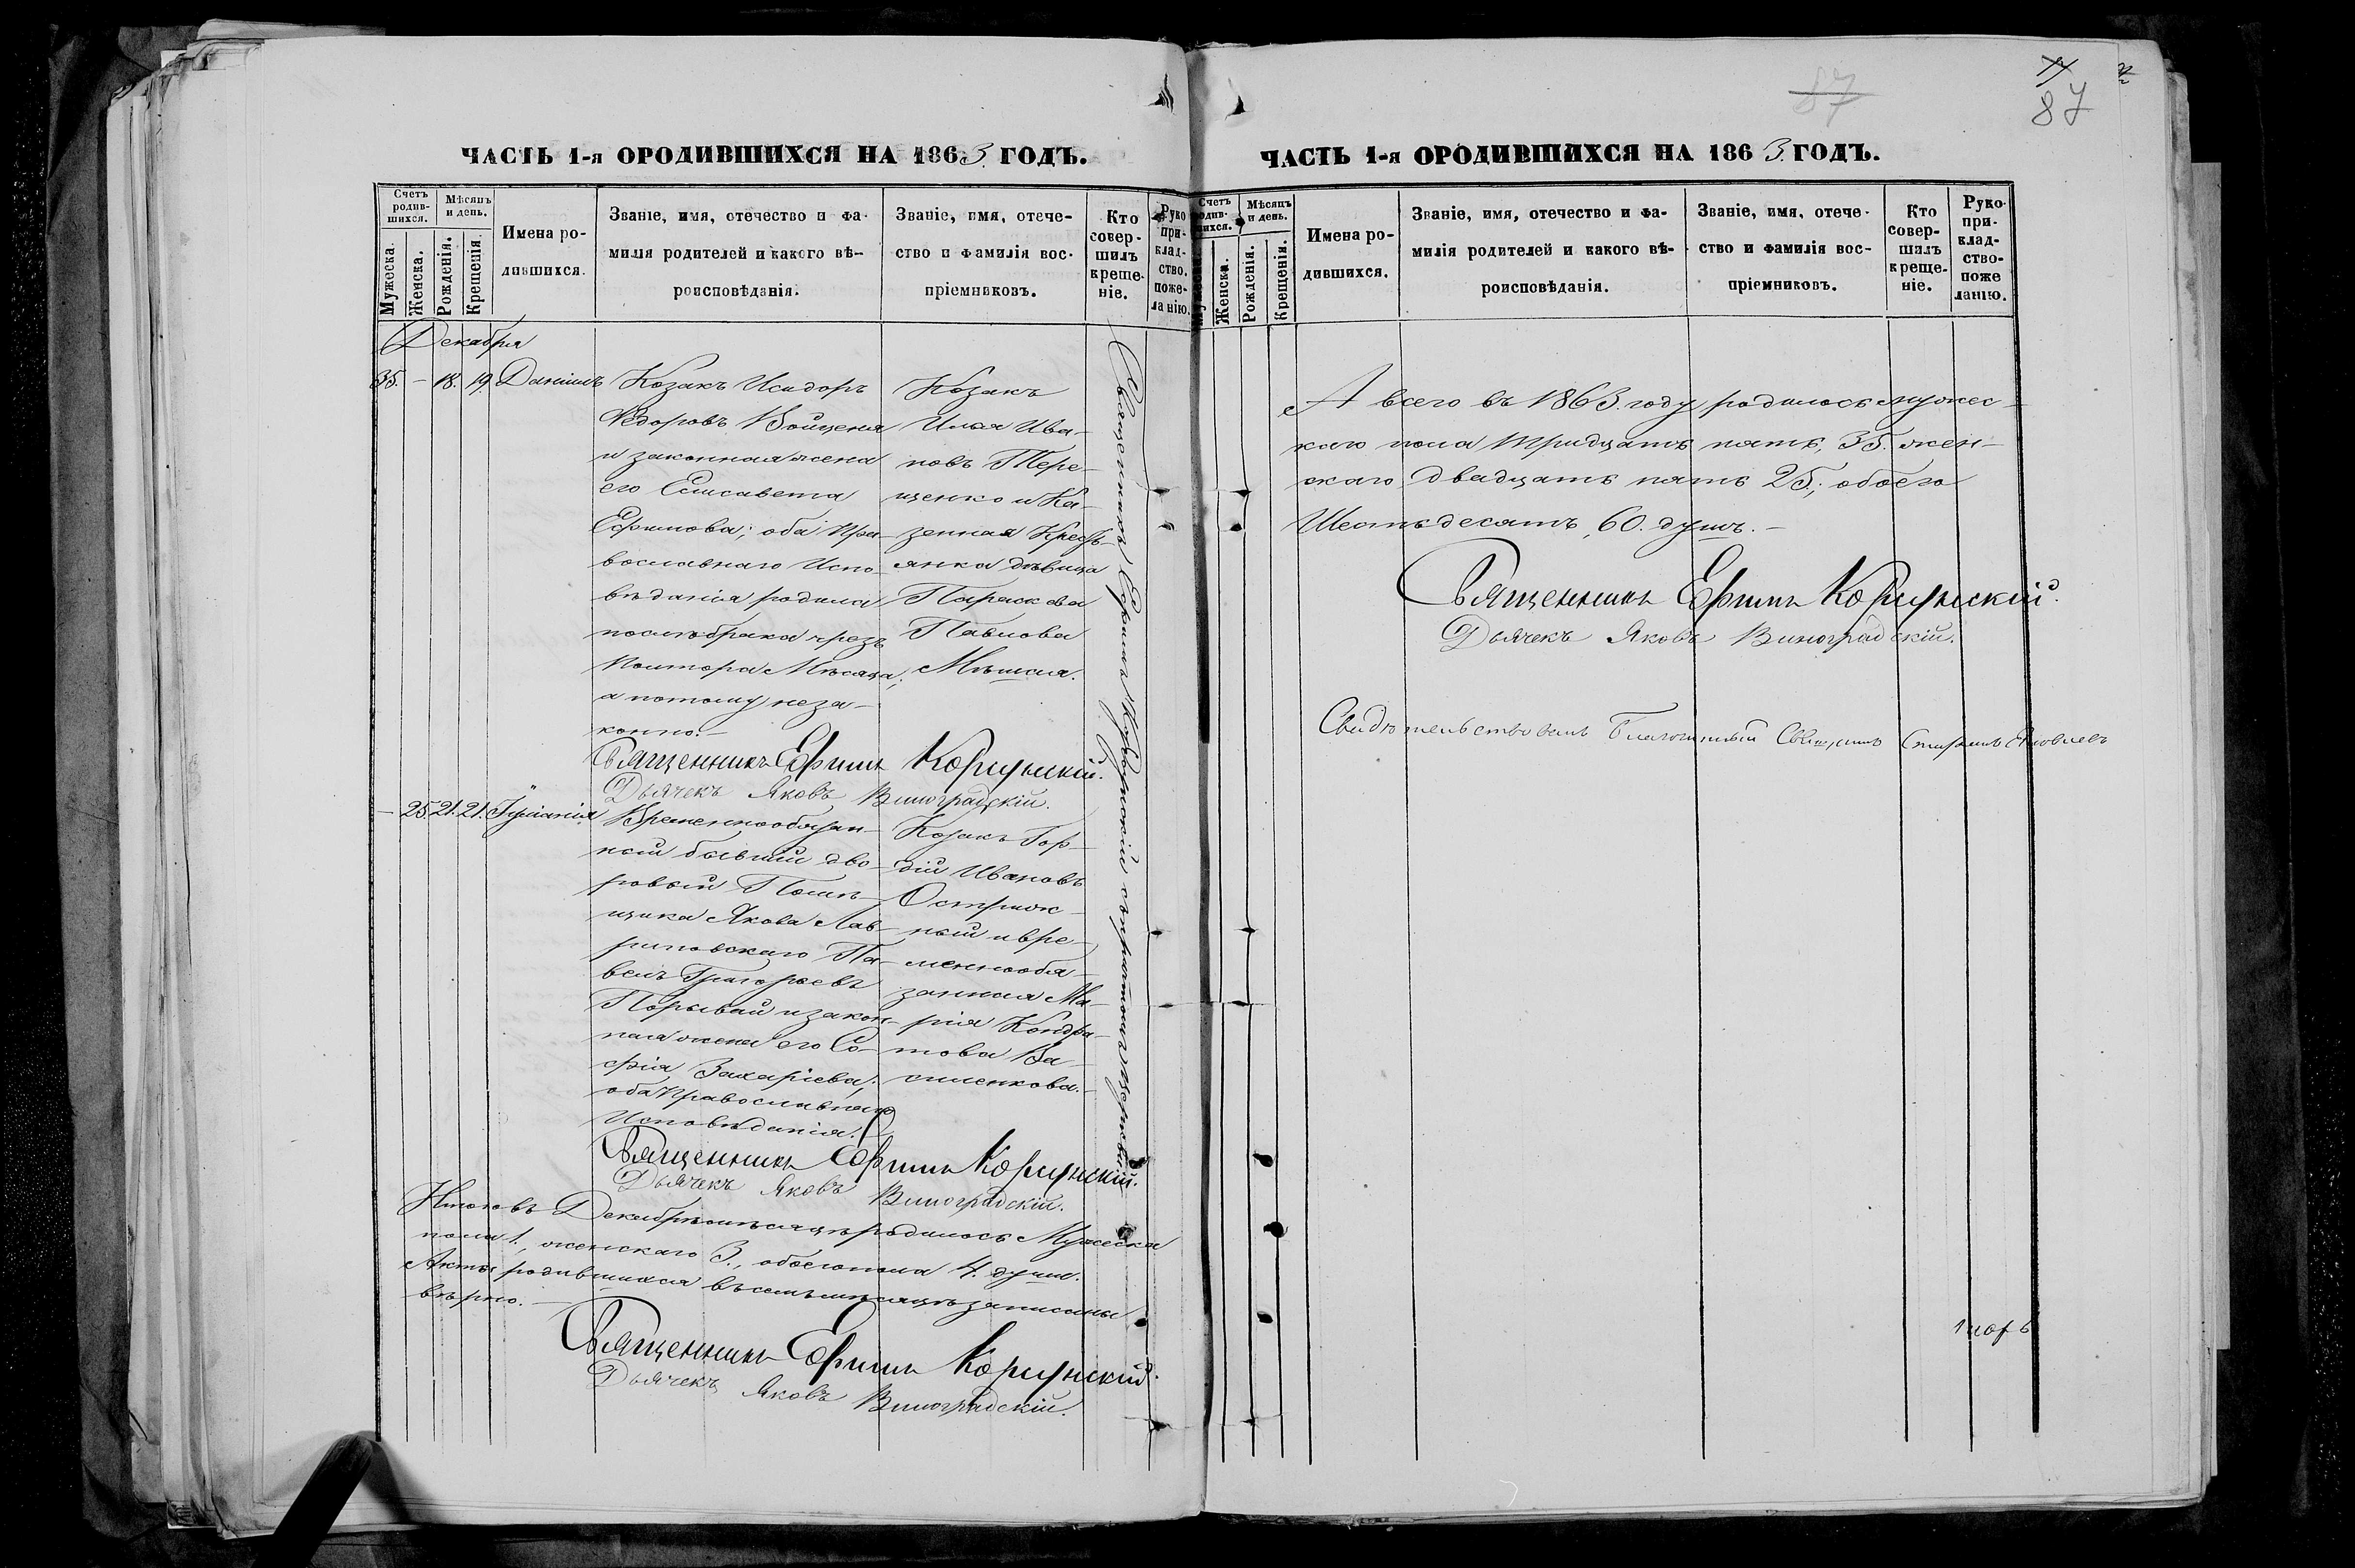 87
87
ЧАСТЬ 1-я ОРОДИВШИХСЯ НА 1863. ГОДЪ.
Счетъ родив-шихся.
Мѣсяцъ и день.
Мужеска.
Женска.
Рожденія.
Крещенія.
Имена ро-
дившихся.
Званіе, имя, отечество и фа-
милія родителей и какого вѣ-
роисповѣданія.
Званіе, имя, отече-
ство и фамилія вос-
пріемниковъ.
Кто
совер-
шилъ
креще-
ніе.
Руко
при-
клад-
ство.
поже-
ланію.
Декабря
35. — 18. 19. Даніилъ
Козакъ Исидоръ
Ѳедоровъ Войценя
и законная жена
его Елисавета
Ефимова; оба Пра-
вославнаго Испо-
вѣданія родила
послѣ брака чрезъ
полтора Мѣсяца;
а потому неза-
конно.—
Козакъ
Илья Ива-
новъ Тере-
щенко и Ка-
зенная Кресть-
янка дѣвица
Параскева
Павлова
Священникъ Ефимъ Корсунскій.
Дьячекъ Яковъ Виноградскій.
— 25. 21. 21. Іуліанія
Временнообязан-
ный бывшій дво-
ровый Помѣ-
щика Якова Лав-
риновскаго Па-
велъ Григорьевъ
Порывай и закон-
ная жена его Со-
фія Захаріева;
оба Православнаго
Исповѣданія.
Козакъ Гор-
дій Ивановъ
Острож-
ный и вре-
меннообя-
занная Ма-
рія Кондра-
това Ва-
силенкова.—
Священникъ Ефимъ Корсунскій.
Дьячекъ Яковъ Виноградскій.
Священникъ Ефимъ Корсунскій
Итого въ Декабрѣ мѣсяцѣ родилось Мужеска
пола 1., женскаго 3., обоего пола 4. души.
Акты родившихся въ семъ мѣсяцѣ записаны
вѣрно.—
Священникъ Ефимъ Корсунскій.
Дьячекъ Яковъ Виноградскій.
ЧАСТЬ 1-я ОРОДИВШИХСЯ НА 1863. ГОДЪ.
Счетъ родив-шихся.
Мѣсяцъ и день.
Женска.
Рожденія.
Крещенія.
Имена ро-
дившихся.
Званіе, имя, отечество и фа-
милія родителей и какого вѣ-
роисповѣданія.
Званіе, имя, отече-
ство и фамилія вос-
пріемниковъ.
Кто
совер-
шилъ
креще-
ніе.
Руко-
при-
клад-
ство-
поже
ланію.
А всего въ 1863. году родилось мужес-
каго пола тридцать пять, 35. жен-
скаго двадцать пять 25.; обоего
Шестьдесятъ, 60. душъ.—
Священникъ Ефимъ Корсунскій.
Дьячекъ Яковъ Виноградскій.
Свидѣтельствовалъ Благочинный